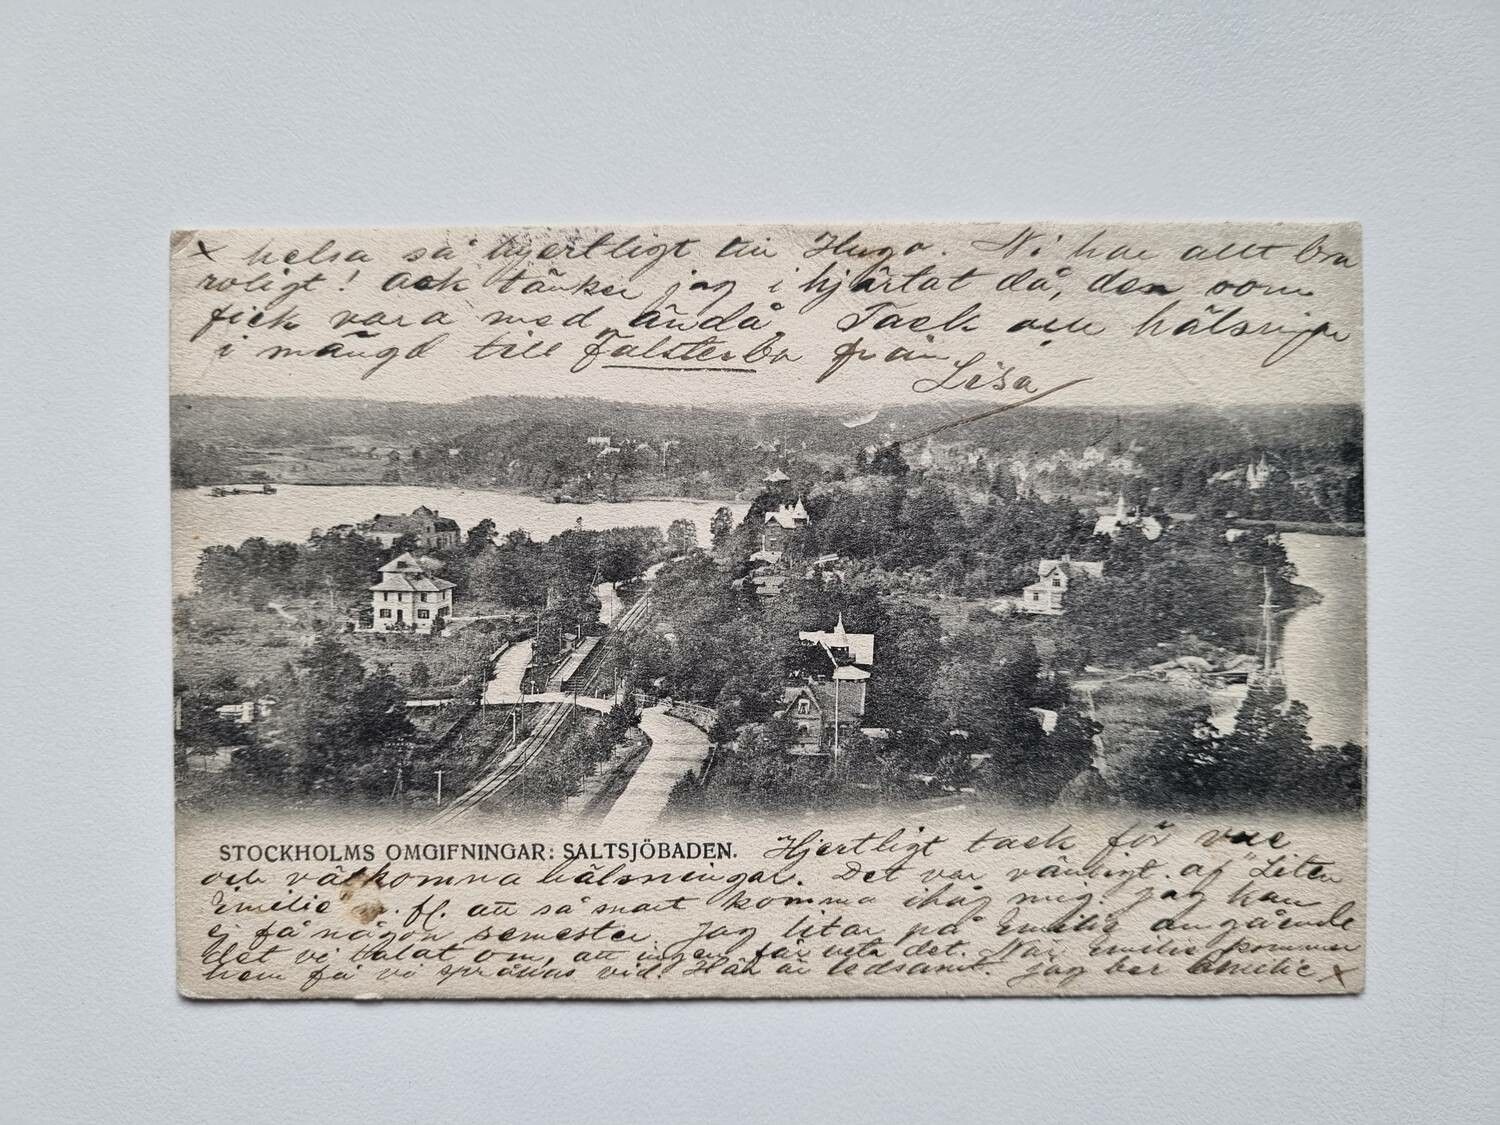 x helsa så hjertligt till Hugo. Ni har allt bra
roligt! och tänker jag i hjärtat då, den som
fick vara med ändå. Tack och hälsningar
i mängd till Falsterbo från
Lisa
STOCKHOLMS OMGIFNINGAR: SALTSJÖBADEN. Hjertligt tack för
och välkomna hälsningar. Det var vänligt af "Liten
Emilie" att så snart komma ihåg mig. Jag kan
ej få någon semester. Jag litar på Emilie angående
det vi talat om, att ingen får veta det. När Emilie kommer
hem få vi språkas vid. Här är ledsamt. Jag ber Emilie x